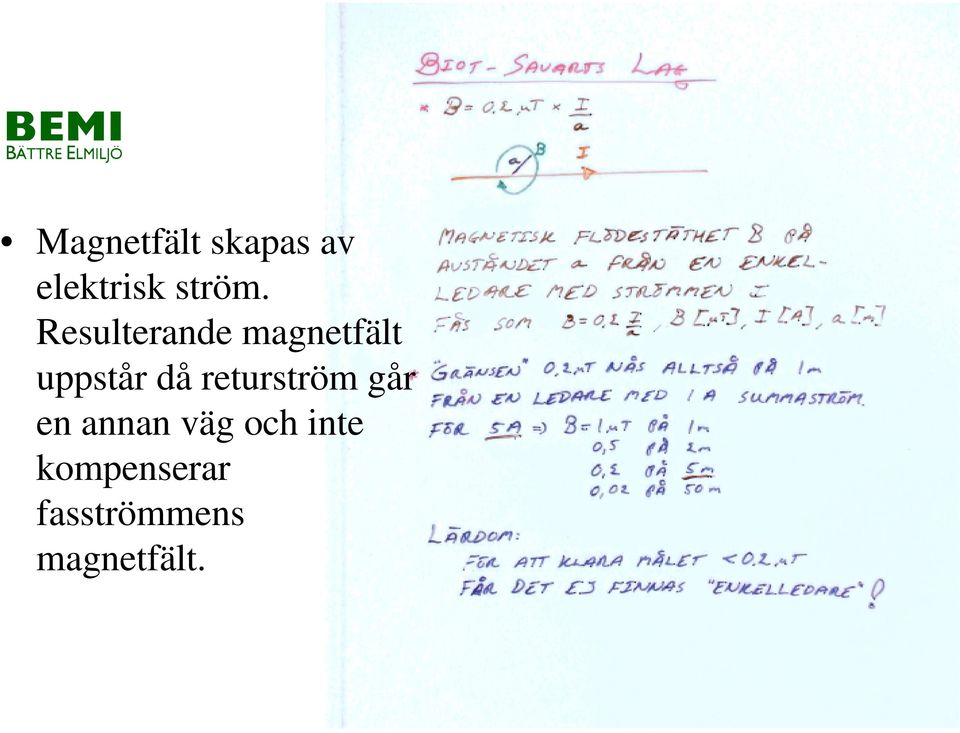 BEMI
BÄTTRE ELMILJÖ
• Magnetfält skapas av
elektrisk ström.
Resulterande magnetfält
uppstår då returström går
en annan väg och inte
kompenserar
fasströmmens
magnetfält.
BIOT-SAVARTS LAG
* B = 0,2 µT × I/a
a B I
MAGNETISK FLÖDESTÄTHET B PÅ
AVSTÅNDET a FRÅN EN ENKEL-
LEDARE MED STRÖMMEN I
FÅS SOM B=0,2 I/a, B [µT], I [A], a [m]
* "GRÄNSEN" 0,2 µT NÅS ALLTSÅ PÅ 1m
FRÅN EN LEDARE MED 1 A SUMMASTRÖM.
FÖR 5A => B=1 µT PÅ 1m
0,5 PÅ 2m
0,2 PÅ 5m
0,02 PÅ 50m
LÄRDOM:
FÖR ATT KLARA MÅLET <0,2 µT
FÅR DET EJ FINNAS "ENKELLEDARE"!